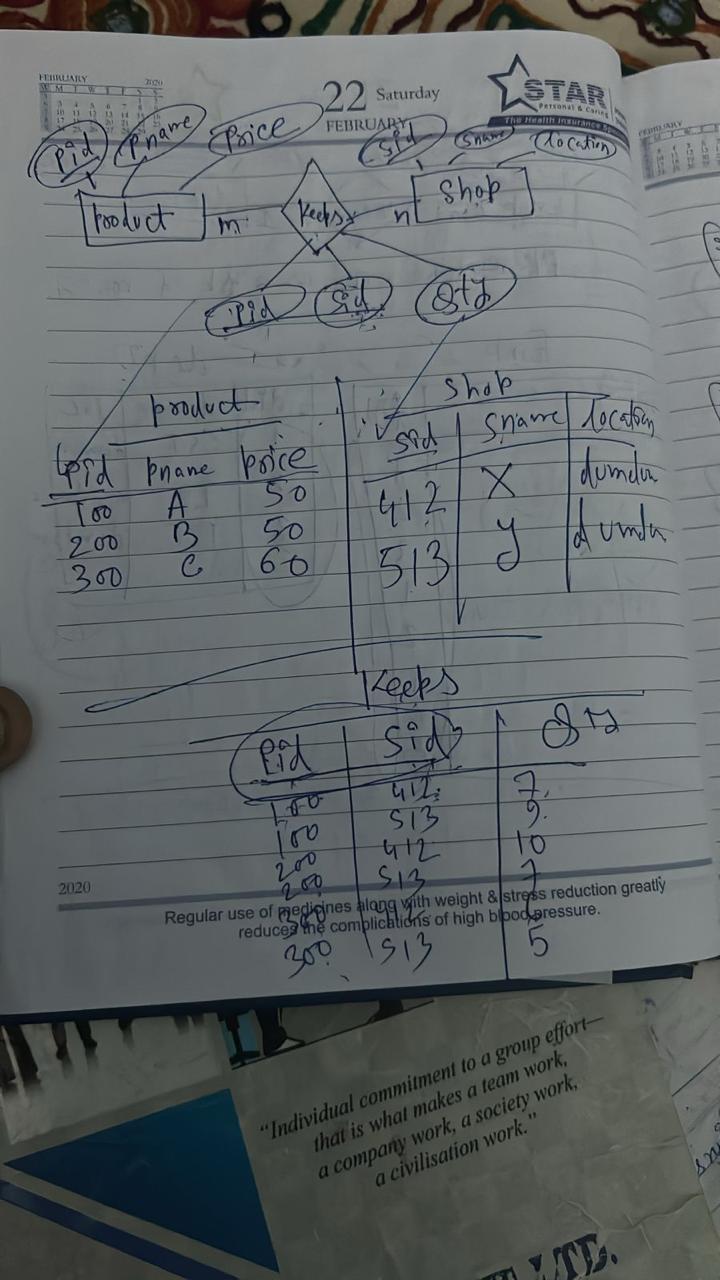 FEBRUARY 2020
22 Saturday
FEBRUARY
STAR
Personal & Caring
The Health Insurance
FEBRUARY
Pid Pname Price Sid Sname Location
Product m Keeps n Shop
Pid Sid Qty
Product Shop
Pid Pname Price Sid Sname Location
100 A 50 412 X dumdum
200 B 50 513 Y dumdum
300 C 60
Keeps
Pid Sid Qty
100 412 7
100 513 9
200 412 10
200 513 7
300 412
300 513 5
2020
Regular use of medicines along with weight & stress reduction greatly
reduces the complications of high blood pressure.
“Individual commitment to a group effort—
that is what makes a team work,
a company work, a society work,
a civilisation work.”
LTD.